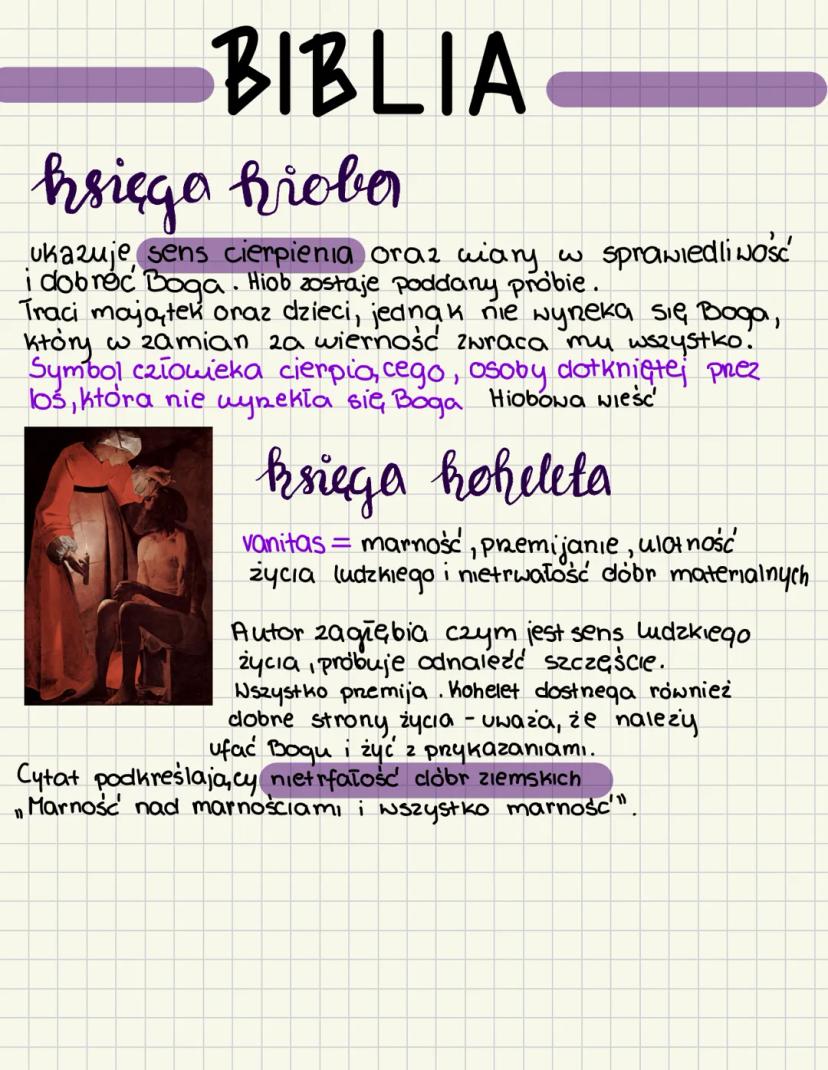 BIBLIA
księga hioba
ukazuje sens cierpienia oraz wiary w sprawiedliwość
i dobroć Boga. Hiob zostaje poddany próbie.
Traci majątek oraz dzieci, jednak nie wyrzeka się Boga,
który w zamian za wierność zwraca mu wszystko.
Symbol człowieka cierpiącego, osoby dotkniętej przez
los, która nie wyrzekła się Boga Hiobowa wieść
księga koheleta
vanitas = marność, przemijanie, ulotność
życia ludzkiego i nietrwałość dóbr materialnych
Autor zagłębia czym jest sens ludzkiego
życia, próbuje odnaleźć szczęście.
Wszystko przemija. Kohelet dostrzega również
dobre strony życia - uważa, że należy
ufać Bogu i żyć z przykazaniami.
Cytat podkreślający nietrfałość dóbr ziemskich
„Marność nad marnościami i wszystko marność".